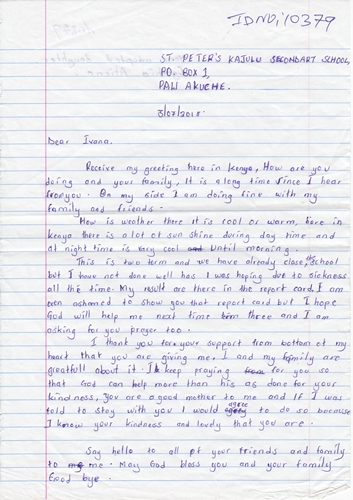 IDNO:10379
ST. PETER'S KAJULU SECONDARY SCHOOL,
P.O. BOX 1,
PAW AKUCHE.
Dear Ivana.
Receive my greeting here in kenya, How are you
doing and your family, It is a long time since I hear
from you. On my side I am doing fine with my
family and friends.
How is weather there it is cool or warm, here in
kenya there is a lot of sun shine during day time and
at night time is easy cool until morning.
This is two term and we have already close, the school
but I have not done well has I was hoping due to sickness
all the time. My result are there in the report card. I am
even ashamed to show you that report card but I hope
God will help me next time three and I am
asking for you prayer too.
I thank you for your support from bottom of my
heart that you are giving me. I and my family are
greatfull about it. I keep praying for you so
that God can help more than his as done for your
kindness. You are a good mother to me and If I was
told to stay with you I would agree to do so because
I know your kindness and lovely that you are.
Say hello to all of your friends and family
to me. May God bless you and your family
Good bye.